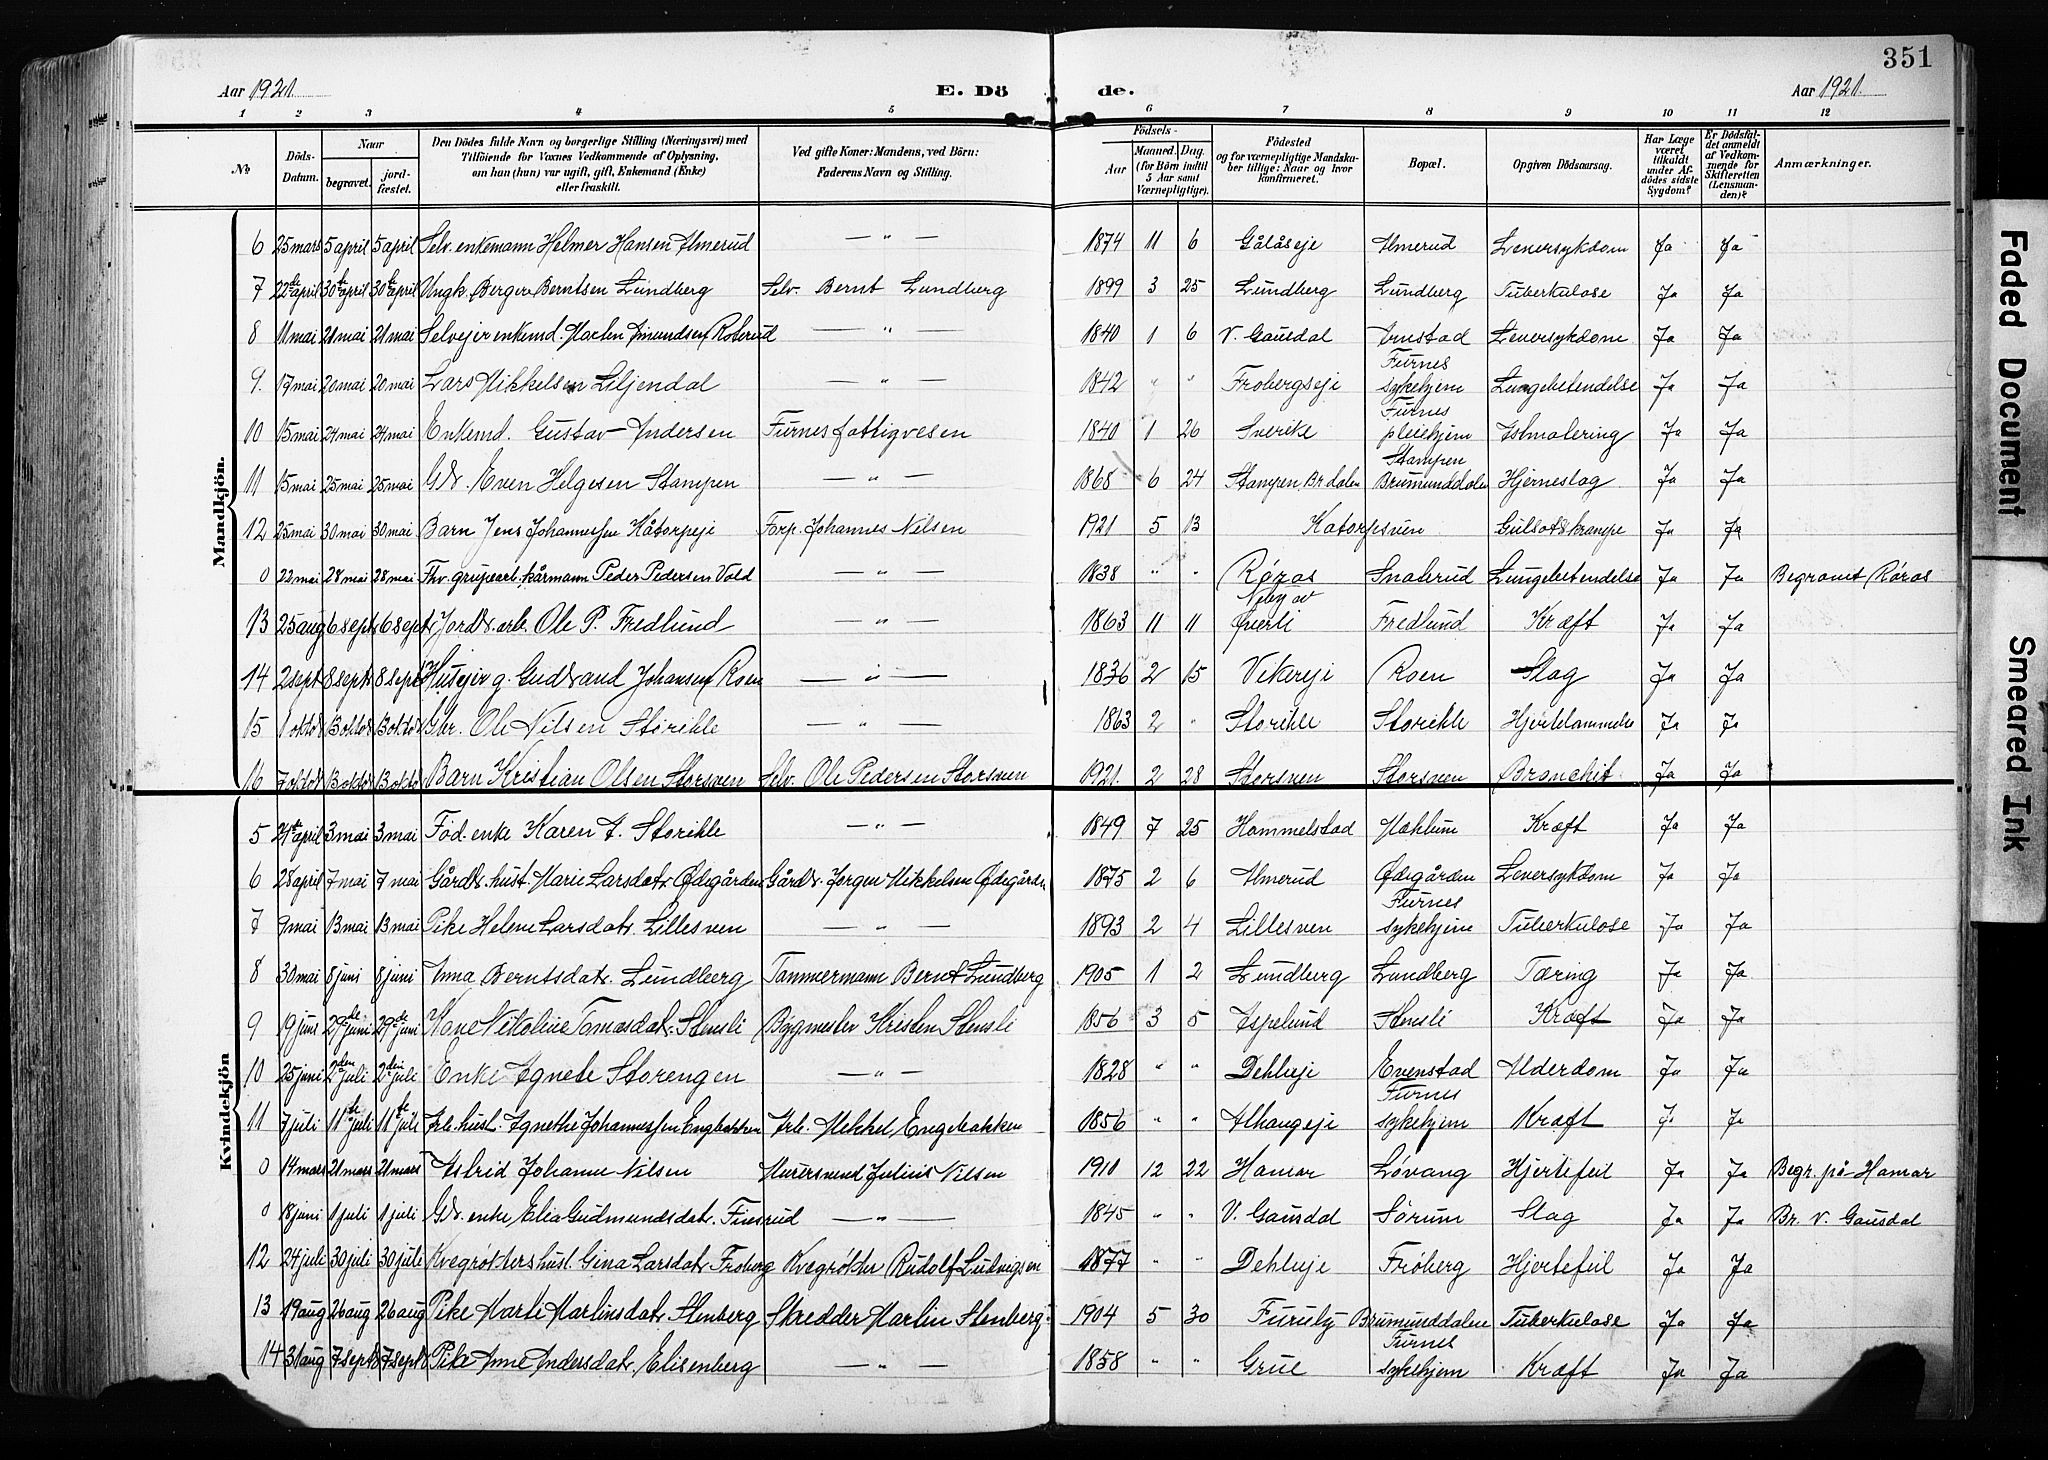 351
Aar 1921. E. Dö de. Aar 1921.
1 2 3 4 5 6 7 8 9 10 11 12
№ Döds-Datum. Naar begravet. jord-fæstet. Den Dödes fulde Navn og borgerlige Stilling (Næringsvei) med Tilföiende for Voxnes Vedkommende af Oplysning, om han (hun) var ugift, gift, Enkemand (Enke) eller fraskilt. Ved gifte Koner: Mandens, ved Börn: Faderens Navn og Stilling. Födsels- Aar Maaned. Dag. (for Börn indtil 5 Aar samt Værnepligtige). Födested og for værnepligtige Mandska-ber tillige: Naar og hvor konfirmeret. Bopæl. Opgiven Dödsaarsag. Har Læge været tilkaldt under Af-dödes sidste Sygdom? Er Dödsfal-det anmeldt af Vedkom-mende for Skifteretten (Lensman-den)? Anmærkninger.
Mandkjön.
6 25 mars 5 april 5 april Selv. enkemann Helmer Hansen Almerud — " — 1874 11 6 Gålåseje Almerud Leversykdom Ja Ja
7 22de april 30te april 30te april Ungk. Berger Berntsen Lundberg Selv. Bernt Lundberg 1899 3 25 Lundberg Lundberg Tuberkulose Ja Ja
8 11 mai 21 mai 21 mai Selvejer enkemd. Marten Amundsen Roterud — " — 1840 1 6 V. Gausdal Arnstad Leversykdom Ja Ja
9. 17 mai 20 mai 20 mai Lars Mikkelsen Liljendal — " — 1842 " " Frobergseje Furnes sykehjem Lungebetendelse Ja Ja
10 15 mai 24 mai 24 mai Enkemd. Gustav Andersen Furnes fattigvesen 1840 1 26 Sverike Furnes pleiehjem Ja Ja
11 15 mai 25 mai 25 mai Gdr. Even Helgesen Stampen — " — 1868 6 24 Stampen, Br.dalen Stampen Brumunddalen Hjerneslag Ja Ja
12 25 mai 30 mai 30 mai Barn Jens Johannessen Håtorpeje Forp. Johannes Nilsen 1921 5 13 Hatorpsven Gulsot & krampe Ja Ja
0 22 mai 28 mai 28 mai Fhv. grupearb. kårmann Peder Pedersen Vold — " — 1838 " " Røros Snaterud Lungebetendelse Ja Ja Begravet Røros
13 25 aug 6 septr 6 septr Jordbr. arb. Ole P. Fredlund — " — 1863 11 11 Neby av Øverli Fredlund Kræft Ja Ja
14 2 sept 8 septr 8 septr Husejer g. Gudbrand Johansen Roen — " — 1836 2 15 Vikereje Roen Slag Ja Ja
15 1 oktob 13 oktob 13 oktob Gbr. Ole Nilsen Storihle — " — 1863 2 " Storihle Storihle Hjertelammelse Ja Ja
16 7 oktob 13 oktob 13 oktob Barn Kristian Olsen Storsven Selv. Ole Pedersen Storsven 1921. 2 28 Storsven Storsveen Bronchit Ja Ja
Kvindekjön
5 21te april 3 mai 3 mai Fød. enke Karen A. Storihle — " — 1849 7 25 Hommelstad Mæhlum Kræft Ja Ja
6 28 april 7 mai 7 mai Gårdbr. hust. Marie Larsdatr. Ødegården Gårdbr. Jørgen Mikkelsen Ødegården 1875 2 6 Almerud Ødegården Leversykdom Ja Ja
7 9 mai 13 mai 13 mai Pike Helene Larsdatr. Lillesven — " — 1893 2 4 Lillesven Furnes sykehjem Tuberkulose Ja Ja
8 30 mai 8 juni 8 juni Anna Berntsdatr. Lundberg Tømmermann Bernt Lundberg 1905 1 2 Lundberg Lundberg Tæring Ja Ja
9 19 juni 29de juni 29de juni Kone Nikoline Tomasdatr. Stensli Bygmester Kristen Stensli 1856 3 5 Aspelund Stensli Kræft Ja Ja
10 25 juni 2den juli 2den juli Enke Agnete Storengen — " — 1828 " " Dehlieje Evenstad Alderdom Ja Ja
11 7 juli 11te juli 11te juli Arb. hust. Agnethe Johannessen Engbakken Arb. Mikkel Engebakken 1856 " " Alhaugeje Furnes sykehjem Kræft Ja Ja
0 14 mars 21 mars 21 mars Astrid Johanne Nilsen Murersvend Julius Nilsen 1910 12 22 Hamar Løvang Hjertefeil Ja Ja Begr. på Hamar
0 18 juni 1 juli 1 juli Gdr. enke Elia Gudmundsdatr. Finsrud — " — 1845 " " V. Gausdal Sørum Slag Ja Ja Br. V. Gausdal
12 24 juli 30 juli 30 juli Kvegrøkters hust. Gina Larsdatr. Froberg Kvegrøkter Rudolf Ludvigsen 1877 " " Dehlieje Frøberg Hjertefeil Ja Ja
13 19 aug 26 aug 26 aug Pike Marte Martinsdatr. Stenberg Skredder Martin Stenberg 1904 5 30 Furuly Brumunddalen Tuberkulose Ja Ja
14 31 aug 7 septr 7 septr Pike Anne Andersdatr. Elisenberg — " — 1858 " " Grue Furnes sykehjem Kræft Ja Ja
Faded Document
Smeared Ink